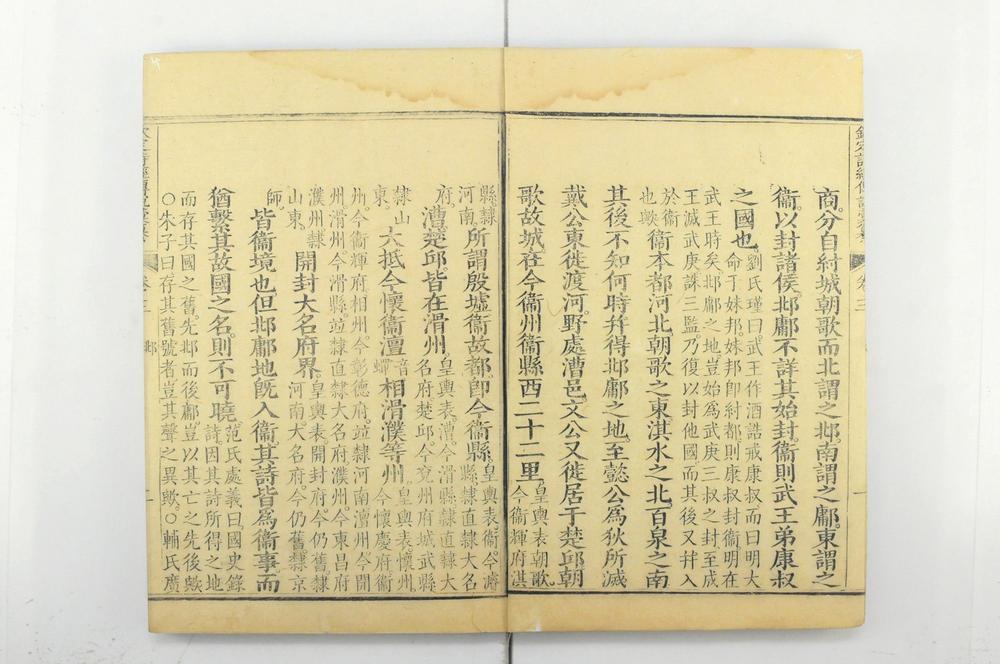 欽定詩經傳說彙纂 卷三 一
商。分自紂城朝歌而北謂之邶。南謂之鄘。東謂之
衞。以封諸侯。邶鄘不詳其始封。衞則武王弟康叔
之國也。
劉氏瑾曰。武王作酒誥戒康叔。而曰明大
命于妹邦。妹邦卽紂都。則康叔封衞明在
武王時矣。邶鄘之地豈始爲武庚三叔之封。至成
王滅武庚誅三監。乃復以封他國。而其後又幷入
於衞
也歟
衞本都河北。朝歌之東。淇水之北。百泉之南
其後不知何時幷得邶鄘之地。至懿公爲狄所滅
戴公東徙渡河。野處漕邑。文公又徙居于楚邱。朝
歌故城。在今衞州衞縣西二十二里。
皇輿表。朝歌。
今衞輝府淇
縣隸
河南。
所謂殷墟。衞故都。卽今衞縣。
皇輿表。衞。今濬
縣隸直隸大名
府。
漕楚邱。皆在滑州。
皇輿表。漕。今滑縣。隸直隸大
名府。楚邱。今兗州府城武縣
隸山
東。
大抵今懷衞澶
音
蟬
相滑濮等州。
皇輿表。懷州。
今懷慶府。衞
州。今衞輝府。相州。今彰德府。竝隸河南。澶州。今開
州。滑州。今滑縣。竝隸直隸大名府。濮州。今東昌府
濮州。隸
山東。
開封大名府界。
皇輿表。開封府。今仍舊。隸
河南。大名府。今仍舊。隸京
師。
皆衞境也。但邶鄘地旣入衞。其詩皆爲衞事。而
猶繫其故國之名。則不可曉。
范氏處義曰。國史錄
詩。因其詩所得之地
而存其國之舊。先邶而後鄘。豈以其亡之先後歟
○朱子曰。存其舊號者。豈其聲之異歟。○輔氏廣
卷三 邶 一